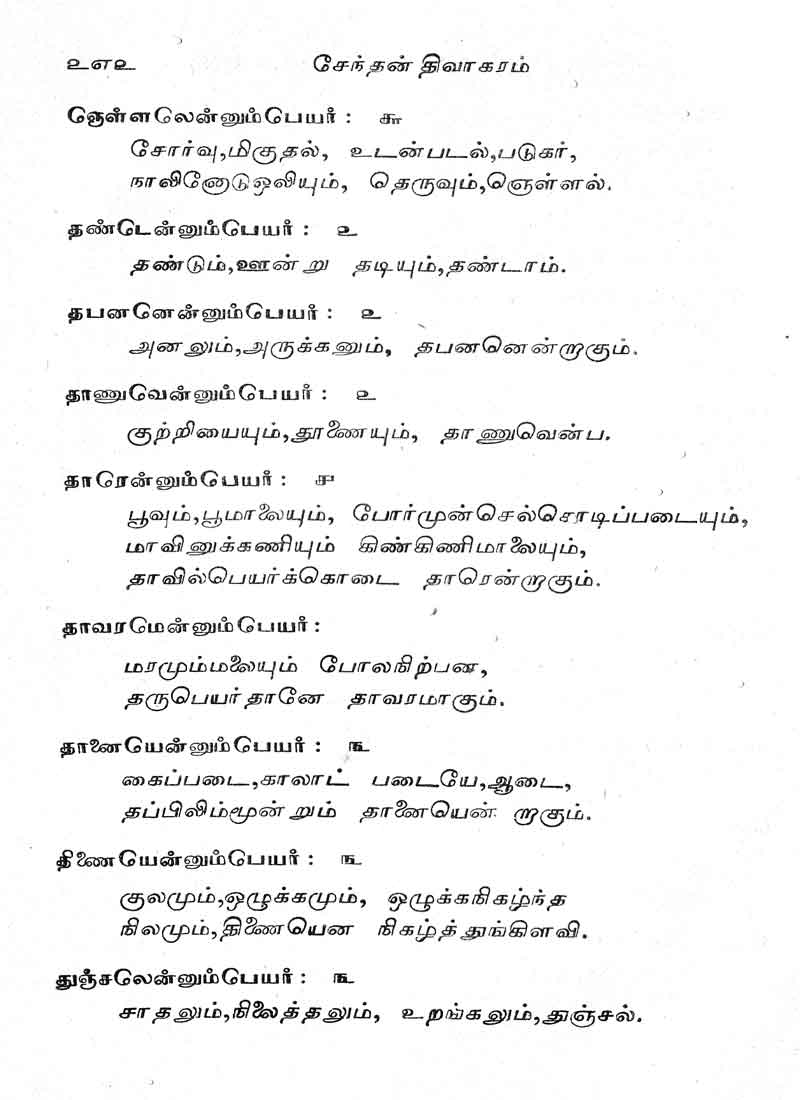 உஎஉ சேந்தன் திவாகரம்
ஞெள்ளலென்னும்பெயர் : ௬
சோர்வு,மிகுதல், உடன்படல்,படுகர்,
நாலினோடுஒலியும், தெருவும்,ஞெள்ளல்.
தண்டென்னும்பெயர் : ௨
தண்டும்,ஊன்று தடியும்,தண்டாம்.
தபனனென்னும்பெயர் : ௨
அனலும்,அருக்கனும், தபனனென்றாகும்.
தாணுவென்னும்பெயர் : ௨
குற்றியையும்,தூணையும், தாணுவென்ப.
தாரென்னும்பெயர் : ௬
பூவும்,பூமாலையும், போர்முன்செல்சொடிப்படையும்,
மாவினுக்கணியும் கிண்கிணிமாலையும்,
தாவில்பெயர்க்கொடை தாரென்றாகும்.
தாவரமென்னும்பெயர் :
மரமும்மலையும் போலநிற்பன,
தருபெயர்தானே தாவரமாகும்.
தானையென்னும்பெயர் : ௩
கைப்படை,காலாட் படையே,ஆடை,
தப்பிலிம்மூன்றும் தானையென் றாகும்.
திணையென்னும்பெயர் : ௩
குலமும்,ஒழுக்கமும், ஒழுக்கநிகழ்ந்த
நிலமும்,திணையென நிகழ்த்துங்கிளவி.
துஞ்சலென்னும்பெயர் : ௩
சாதலும்,நிலைத்தலும், உறங்கலும்,துஞ்சல்.